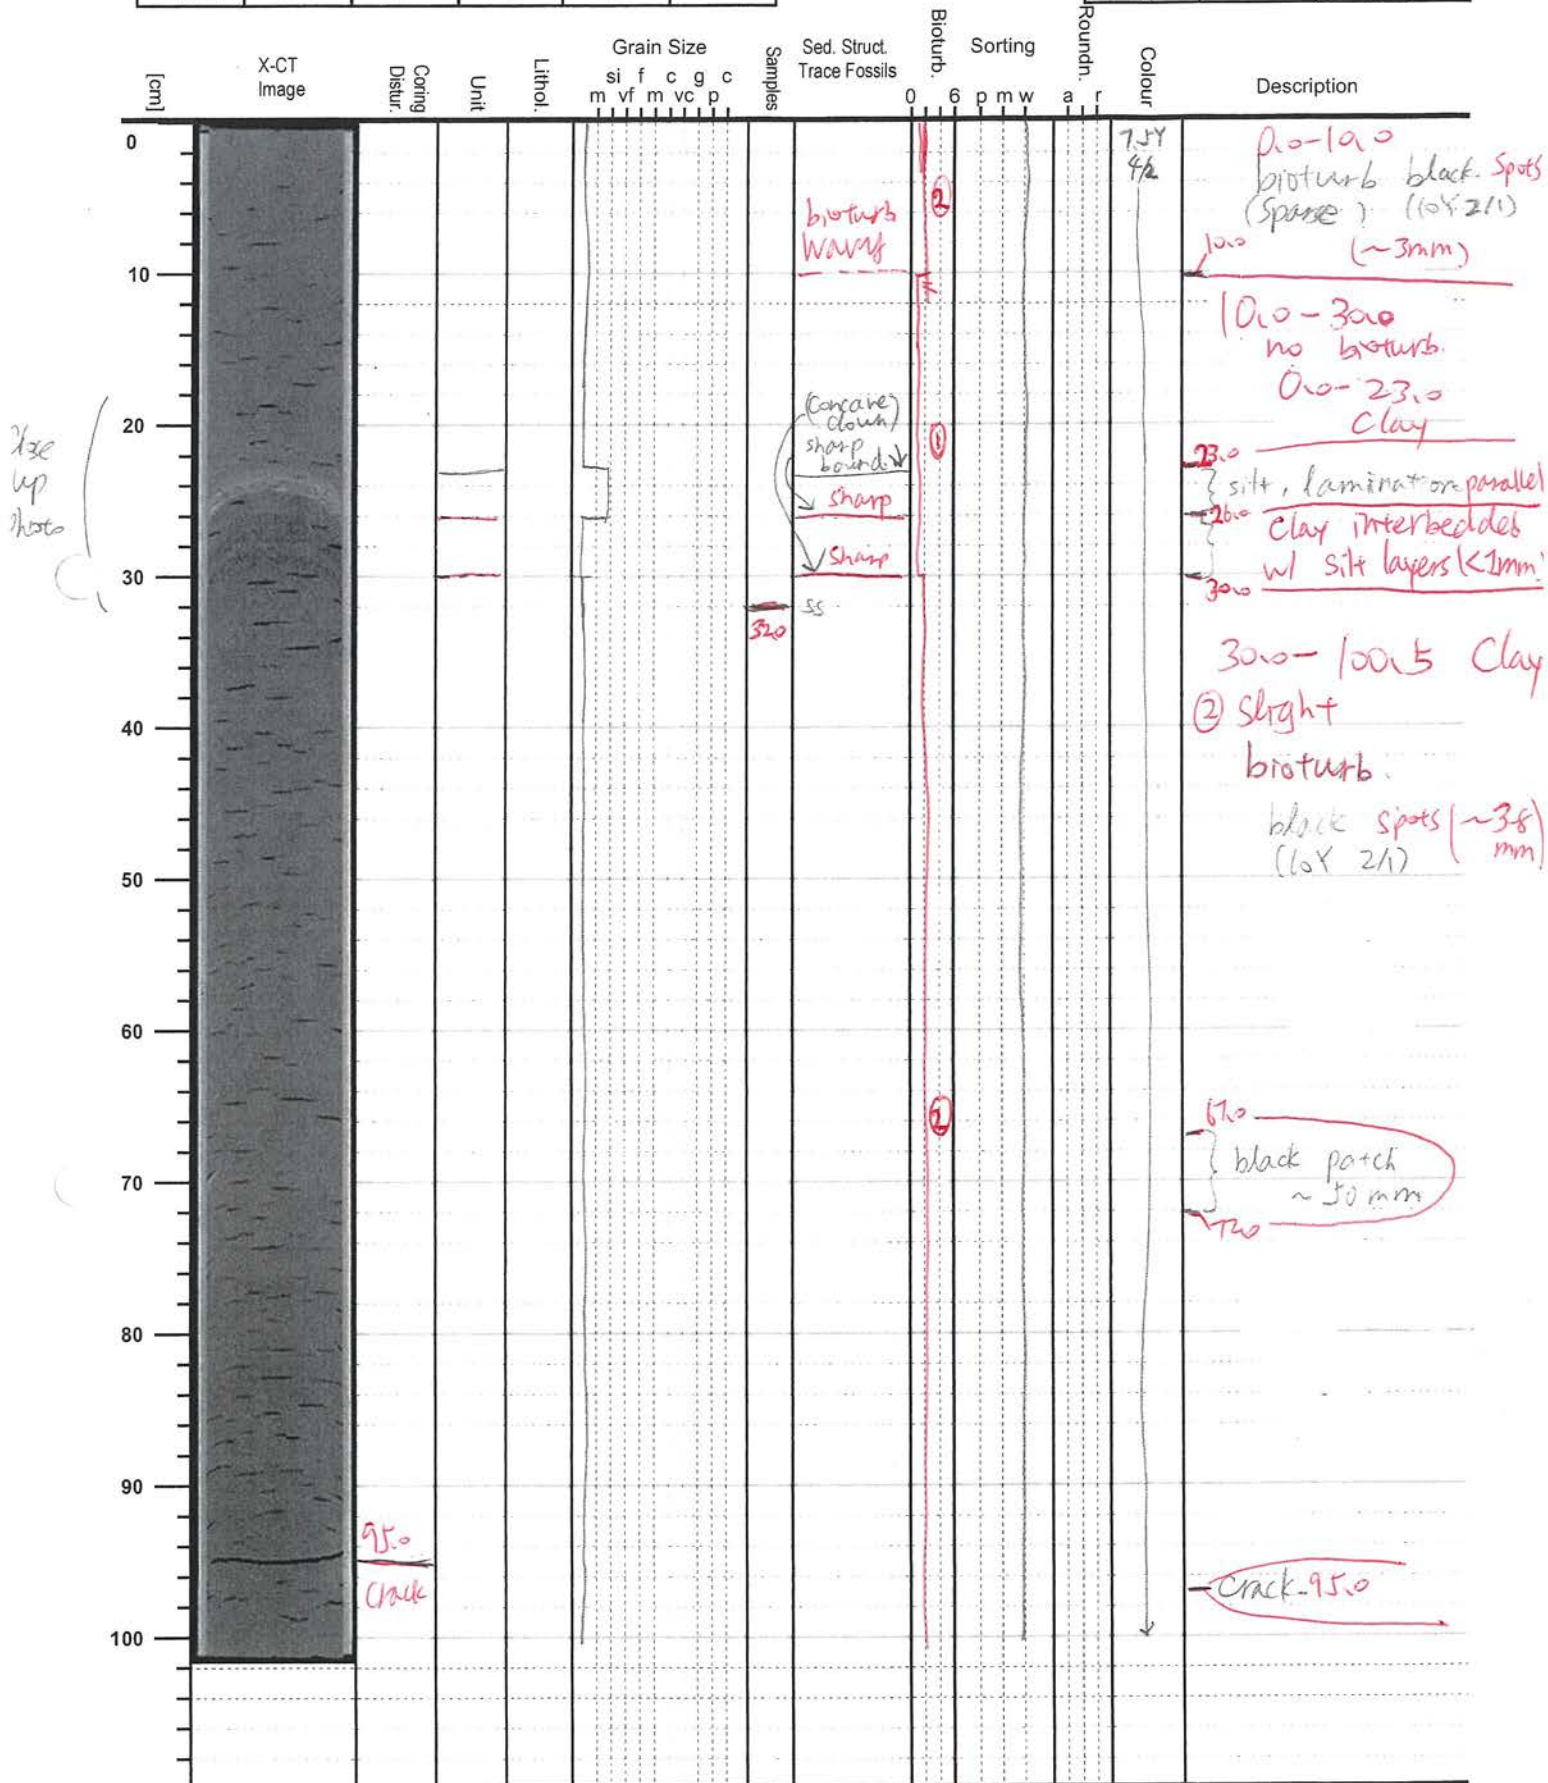 [cm]
X-CT
Image
Coring
Distur.
Unit
Lithol.
Grain Size
si f c g c
m vf m vc p
Samples
Sed. Struct.
Trace Fossils
Bioturb.
0 6
Sorting
p m w
Roundn.
a r
Colour
Description
0
10
20
30
40
50
60
70
80
90
100
up
95.0
Crack
32.0
ss
bioturb
wavy
(concave)
down
sharp
bound.
sharp
sharp
2
1
2
7.5Y
4/2
0.0-10.0
bioturb black spots
(sparse) (10Y 2/1)
(~3mm)
10.0
10.0-30.0
no bioturb.
0.0-23.0
Clay
23.0
silt, lamination parallel
26.0
Clay interbedded
w/ silt layers (<1mm
30.0
30.0-100.5 Clay
② slight
bioturb.
black spots (~3-8
(10Y 2/1) mm)
67.0
black patch
~50mm
72.0
Crack 95.0